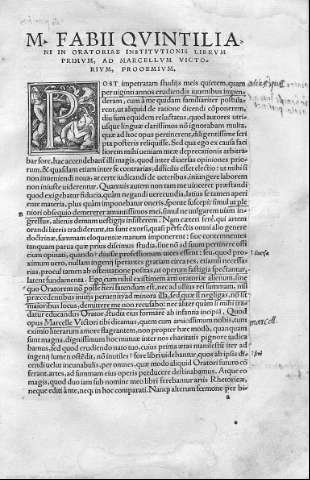 M. FABII QVINTILIA
NI IN ORATORIAE INSTITVTIONIS LIBRVM
PRIMVM, AD MARCELLVM VICTO-
RIVM, PROOEMIVM,
POST impetratam studiis meis quietem, quam
per uiginti annos erudiendis iuuenibus impen
deram, cum à me quidam familiariter postula
rent, ut aliquid de ratione dicendi componerem,
diu sum equidem reluctatus: quod autores utri-
usque linguæ clarissimos nō ignorabam multa,
quæ ad hoc opus pertinerent, diligentissime scri
pta posteris reliquisse. Sed qua ego ex causa faci
liorem mihi ueniam meæ deprecationis arbitra-
bar fore, hac accendebant illi magis, quod inter diuersas opiniones prio-
rum, & quasdam etiam inter se contrarias, difficilis esset electio: ut mihi si
non inueniendi noua: at certe iudicandi de ueteribus, iniungere laborem
non iniuste uiderentur. Quamuis autem non tam me uinceret præstandi
quod exigebatur fiducia, quàm negandi uerecundia, latius se tamen aperi
ente materia, plus quàm imponebatur oneris, sponte suscepi: simul ut ple
niori obsequio demererer amantissimos mei, simul ne uulgarem uiam in-
gressus, alienis demum uestigiis insisterem. Nam cæteri ferè, qui artem
orandi literis tradiderunt, ita sunt exorsi, quasi perfectis omni alio genere
doctrinæ, summam eloquentiæ manum imponerent: siue contemnentes
tanquam parua quæ prius discimus studia, siue nō ad suum pertinere offi
cium opinati, quando diuisæ professionum uices essent: seu, quod pro-
ximum uero, nullam ingenij sperantes gratiam circa res, etiamsi necessa-
rias, procul tamen ab ostentatione positas, ut operum fastigia spectantur,
latent fundamenta. Ego cum nihil existimem arti oratoriæ alienum, sine
quo Oratorem nō posse fieri fatendum est, nec ad ullius rei summam, nisi
præcedentibus initijs perueniri: ad minora illa, sed quæ si negligas, nō sit
maioribus locus, demittere me non recusabo: nec aliter quàm si mihi tra
datur educandus Orator, studia eius formare ab infantia incipiā. Quod
opus Marcelle Victori tibi dicamus, quem cum amicissimum nobis, tum
eximio literarum amore flagrantem, non propter hæc modò, quanquam
sunt magna, dignissimum hoc mutuæ inter nos charitatis pignore iudica
bamus, sed quod erudiendo nato tuo, cuius prima ætas manifestū iter ad
ingenij lumen ostēdit, nō inutiles fore libri uidebantur, quos ab ipsis di-
cendi uelut incunabulis, per omnes, quæ modo aliquid Oratori futuro cō
ferant, artes, ad summam eius operis perducere destinabamus. Atque eo
magis, quod duo iam sub nomine meo libri ferebantur artis Rhetoricæ,
neque editi à me, neq; in hoc comparati. Nanq; alterum sermone per bi-
a